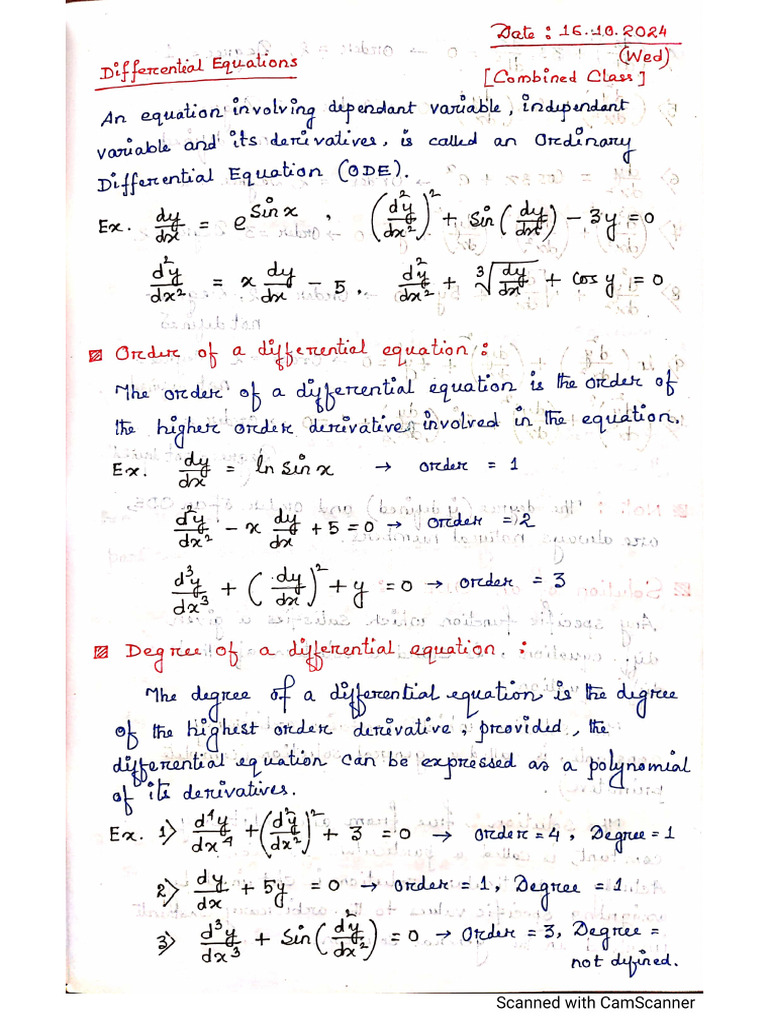 Date : 16.10.2024
(Wed)
Differential Equations
[Combined Class]
An equation involving dependant variable, independant
variable and its derivatives, is called an Ordinary
Differential Equation (ODE).
Ex. dy/dx = e^(Sin x) , (d²y/dx²)² + Sin(dy/dx) - 3y = 0
d²y/dx² = x dy/dx - 5 . d²y/dx² + ∛(dy/dx) + Cos y = 0
Order of a differential equation :
The order of a differential equation is the order of
the higher order derivative involved in the equation.
Ex. dy/dx = ln Sin x → order = 1
d²y/dx² - x dy/dx + 5 = 0 → order = 2
d³y/dx³ + (dy/dx)² + y = 0 → order = 3
Degree of a differential equation. :
The degree of a differential equation is the degree
of the highest order derivative, provided, the
differential equation can be expressed as a polynomial
of its derivatives.
Ex. 1) d⁴y/dx⁴ + (d²y/dx²)² + 3 = 0 → Order = 4, Degree = 1
2) dy/dx + 5y = 0 → Order = 1, Degree = 1
3) d³y/dx³ + Sin(d²y/dx²) = 0 → Order = 3, Degree =
not defined.
Scanned with CamScanner